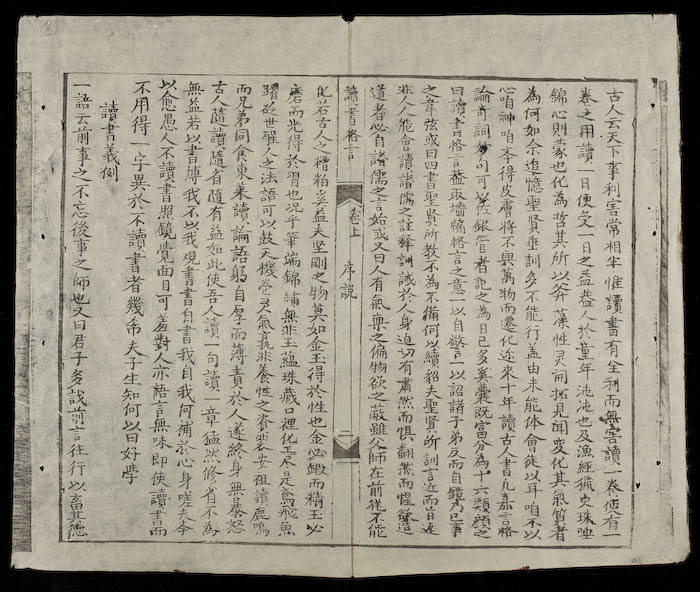 古人云天下事利害常相半惟讀書有全利而無害讀一卷便有一
卷之用讀一日便受一日之益蓋人於童年沌沌也及漁經獵史珠唾
錦心則蒙也化為哲其所以斧藻性灵開拓見聞變化其氣質者
為何如余追憶聖賢垂訓多不能行盖由未能體會徒以耳咱不以
心咱神咱夲得皮膚將不與萬物而遷化近來十年讀古人書九嘉言格
論奇詞妙句可以佐銀管者記之為日已多奚囊既富分為十六類顏之
曰讀書格言蓋取墻牗格言之意一以自警一以詔諸子弟反而自鏡乃已事
之韋弦或曰四書聖賢所教不為不備何以續貂夫聖賢所訓言近而旨遠
非人人能會讀諸儒之註釋訓誡於人身迫切有肅然而惧翻然而惺欲造
道者必自諸儒之言始或又曰人有氣稟之偏物欲之蔽雖父師在前徒不能
讀書格言
卷上
序說
二
化若古人之糟粕奚益夫坚剛之物莫如金玉得於性也金必鍛而精玉必
磨而光得於習也况乎筆端錦繡無非玉蘊珠藏口裡化工尽是鳥飛魚
躍砭世醒人之法語可以鼓天機卷灵氣竟非養性之夲裴安祖讀鹿鳴
而兄弟同食東莱讀論語躬自厚而薄責於人遂終身無暴怒
古人隨讀隨省隨有益如此使吾人讀一句讀一章猛然修省不為
無益若以書庫我不以我观書書自書我自我何補於心身嗟夫夲
以愈愚人不讀書照鏡覺面目可羞對人亦語言無味即使讀書而
不用得一字異於不讀書者幾希夫子生知何以曰好學
讀書義例
一語云前事之不忘後事之師也又曰君子多識前言往行以畜其德